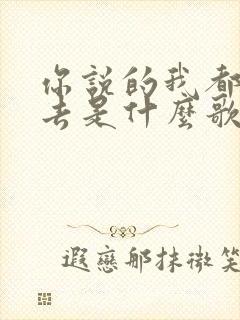 你説的我都
去是什麼歌
遐戀那抹微笑